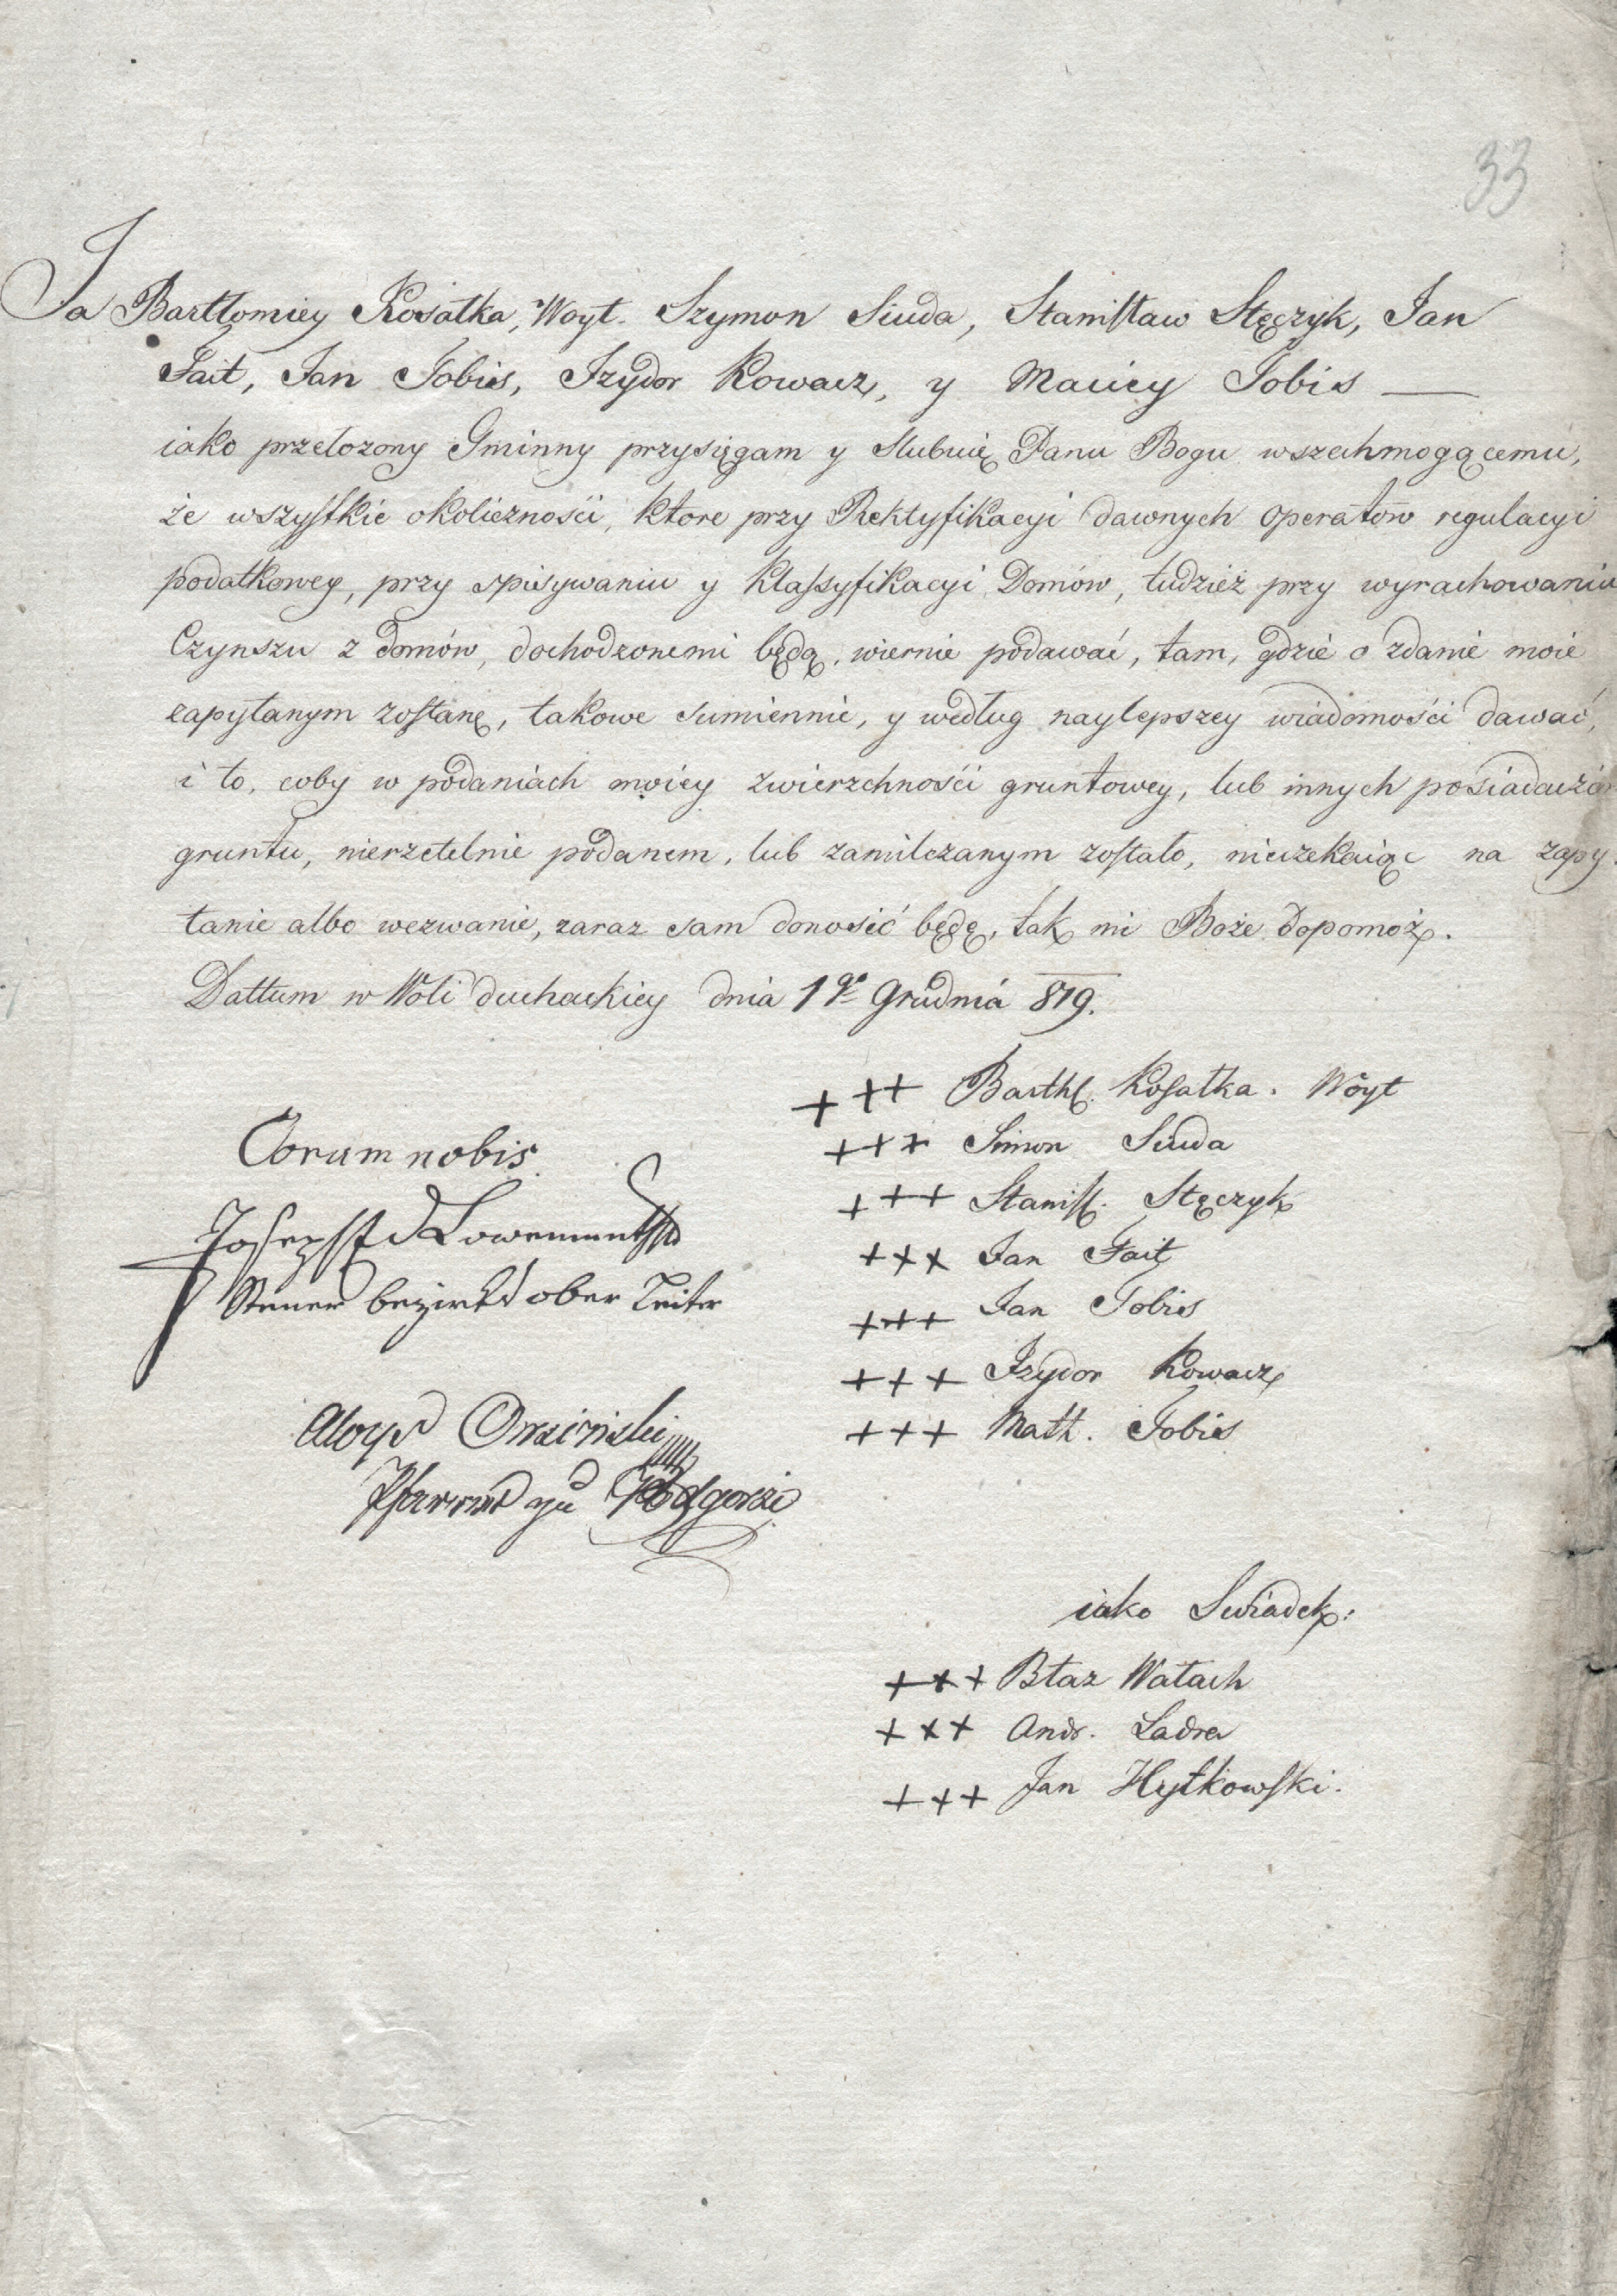 33
Ja Bartłomiey Kosałka, Woyt. Szymon Siuda, Stanisław Stęczyk, Jan
Fait, Jan Tobis, Izydor Kowacz, y Maciey Tobis —
iako przełozony Gminny przysięgam y slubuię Panu Bogu wszechmogącemu,
że wszystkie okoliczności, ktore przy Rektyfikacyi dawnych operatow regulacyi
podatkowey, przy spisywaniu y klassyfikacyi Domów, tudzież przy wyrachowaniu
Czynszu z domów, dochodzonemi będą, wiernie podawać, tam, gdzie o zdanie moie
zapytanym zostanę, takowe sumiennie, y według naylepszey wiadomości dawać,
i to, coby w podaniach moiey zwierzchności gruntowey, lub innych posiadaczów
gruntu, nierzetelnie podanem, lub zamilczanym zostało, nieczekaiąc na zapy-
tanie albo wezwanie, zaraz sam donosić będę, tak mi Boże dopomoż.
Dattum w Woli duchackiey dnia 1go Grudnia 819.
+++ Barthl. Kosałka. Woyt
+++ Simon Siuda
+++ Stanisl. Stęczyk
+++ Jan Fait
+++ Jan Tobis
+++ Izydor Kowacz
+++ Math. Tobis
Coram nobis
Joseph
Steuer bezirks ober Leiter
Aloys
Pfarrer zu Podgorze
iako Swiadek:
+++ Błaz Wałach
+++ Andr. Ladra
+++ Jan Hytkowski.